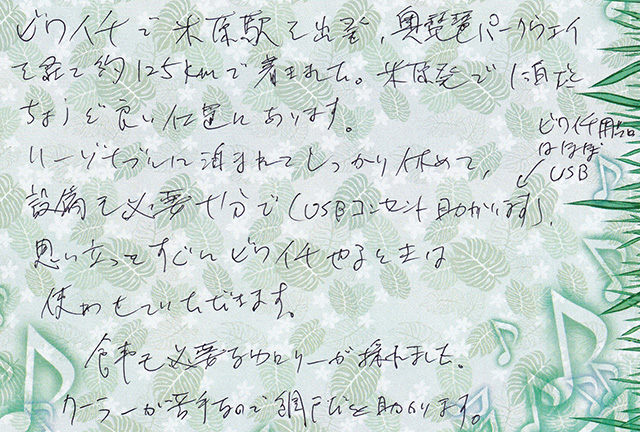 ビワイチで米原駅を出発，奥琵琶パークウェイ
を経て約125kmで着きました。米原発で
ちょうど良い位置にあります。
リーズナブルに泊まれてしっかり休めて，
設備も必要十分で（USBコンセント助かります）．
思い立ってすぐにビワイチやるときは
使わせていただきます。
食事も必要なカロリーが採れました。
クーラーが苦手なので網戸だと助かります。
ビワイチ用品
はほぼ
USB